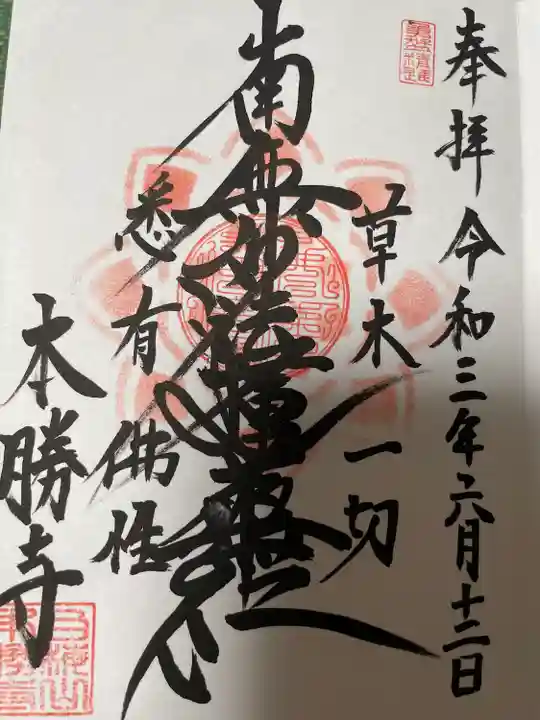 奉拝 令和三年六月十二日
草木一切
南無妙法蓮華経
悉有佛性
本勝寺